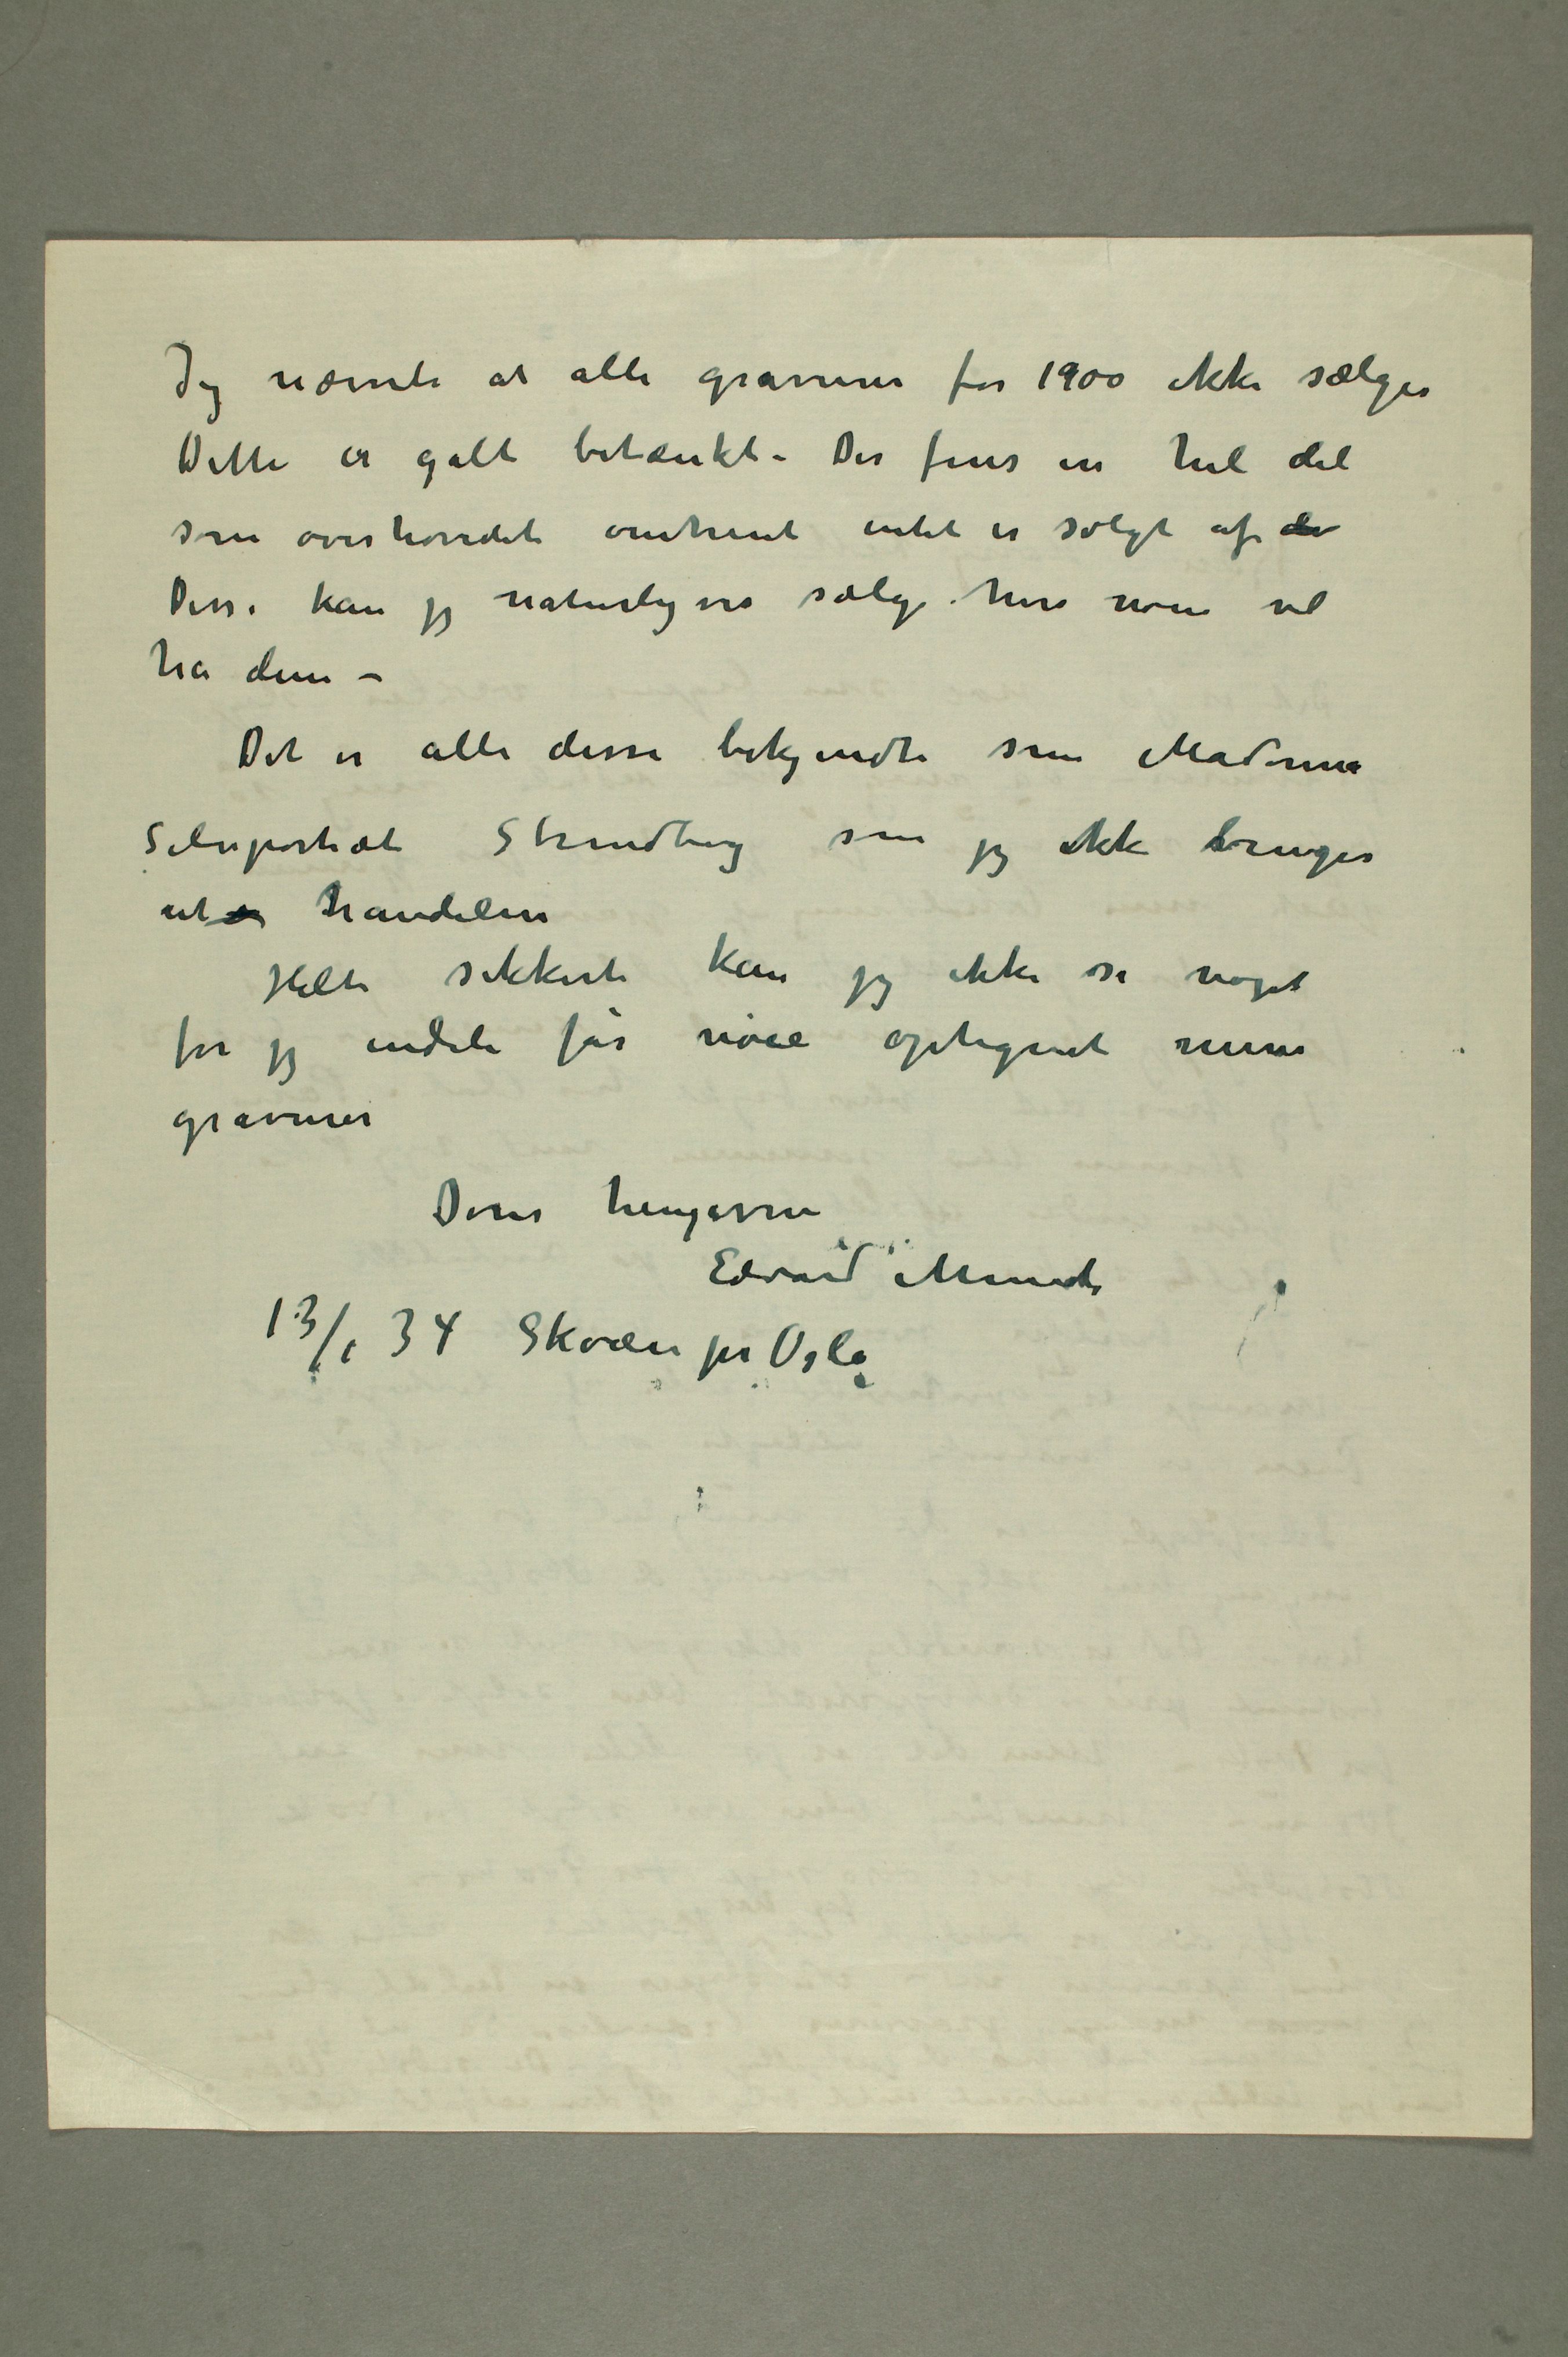 Jeg nævnte at alle gravurer før 1900 ikke sælges
Dette er galt betænkt – Der fins en hel del
som overhovedet omtrent intet er solgt af de
Disse kan jeg naturligvis sælge hvis noen vil
ha dem –
Det er alle disse bekjendte som Madonna
Selvportræt Strindberg som jeg ikke bringer
ut handelen
Helt sikkert kan jeg ikke si noget
før jeg endeli får nøie optegnet mine
gravurer
Deres hengivne
Edvard Munch
13/1 34 Skøien pr Oslo